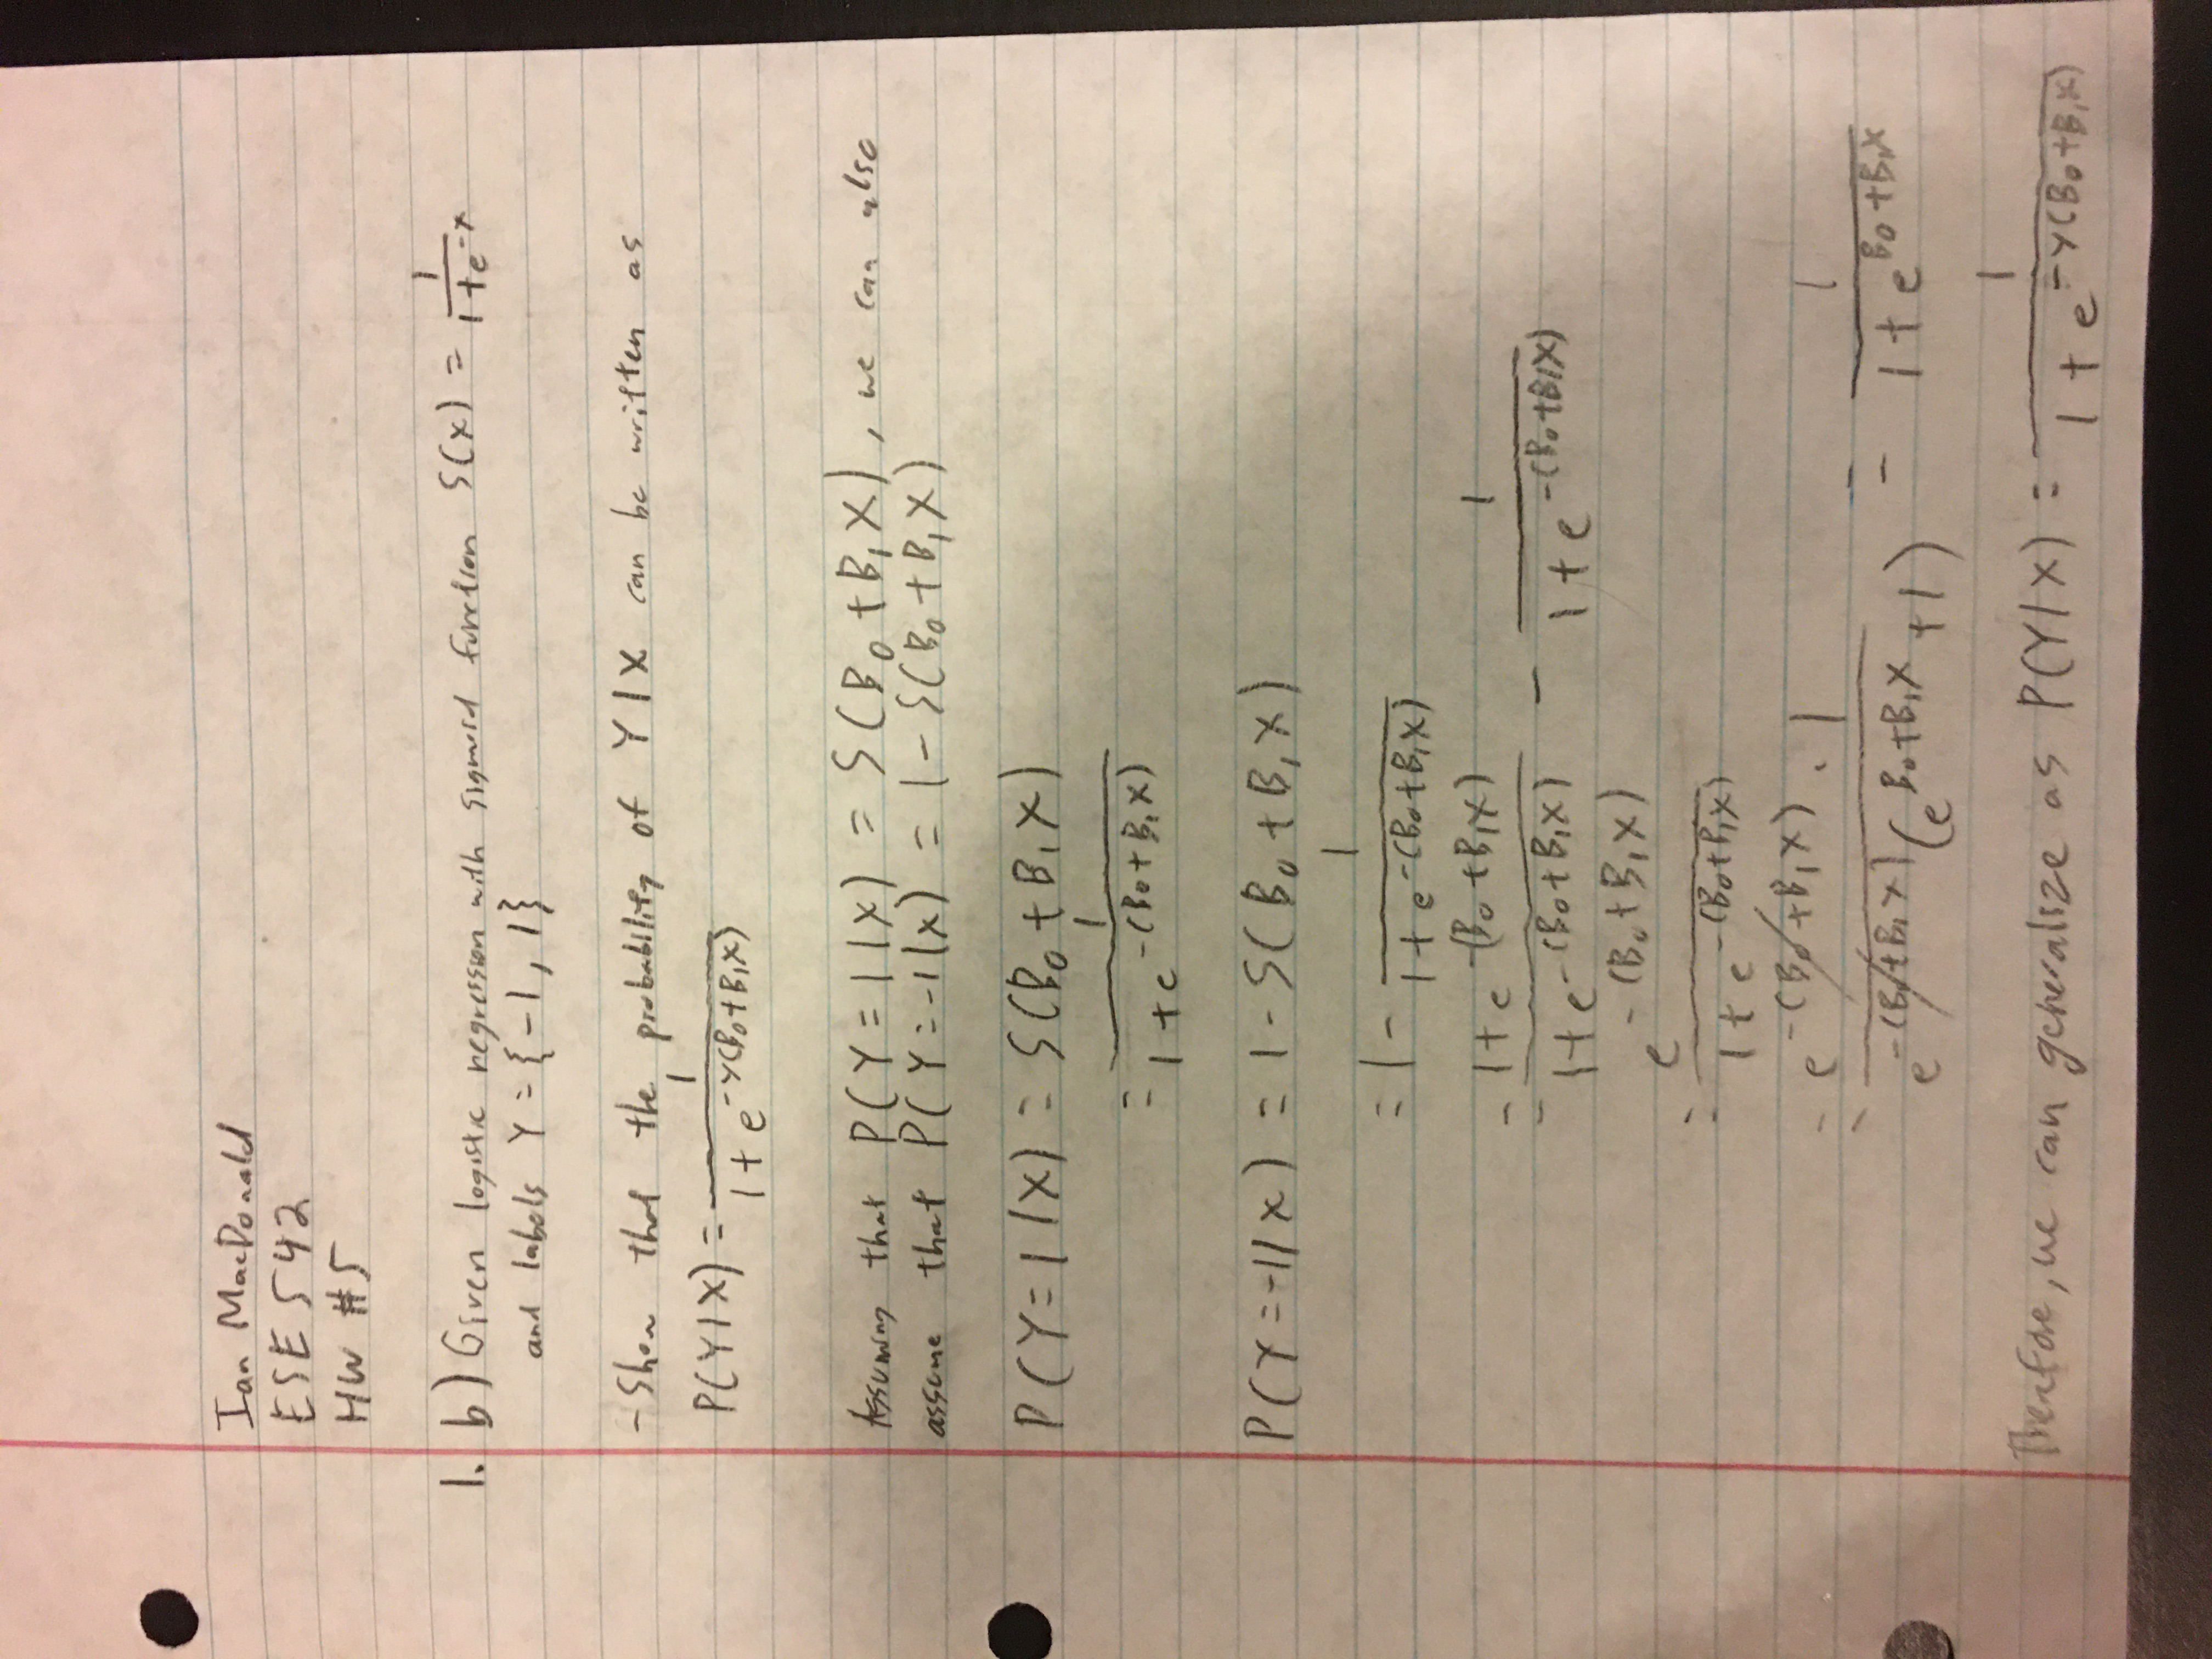 Ian MacDonald
ESE 542
HW #5
1. b) Given logistic regression with sigmoid function S(x) = 1/(1+e^-x)
and labels Y = {-1, 1}
- Show that the probability of Y|X can be written as
P(Y|X) = 1/(1+e^-Y(B₀+B₁X))
Assuming that P(Y=1|X) = S(B₀+B₁X), we can also
assume that P(Y=-1|X) = 1-S(B₀+B₁X)
P(Y=1|X) = S(B₀+B₁X)
= 1/(1+e^-(B₀+B₁X))
P(Y=-1|X) = 1-S(B₀+B₁X)
= 1 - 1/(1+e^-(B₀+B₁X))
= (1+e^-(B₀+B₁X))/(1+e^-(B₀+B₁X)) - 1/(1+e^-(B₀+B₁X))
= e^-(B₀+B₁X)/(1+e^-(B₀+B₁X))
= (e^-(B₀+B₁X) · 1)/(e^-(B₀+B₁X)(e^B₀+B₁X + 1)) = 1/(1+e^B₀+B₁X)
Therefore, we can generalize as P(Y|X) = 1/(1+e^-Y(B₀+B₁X))